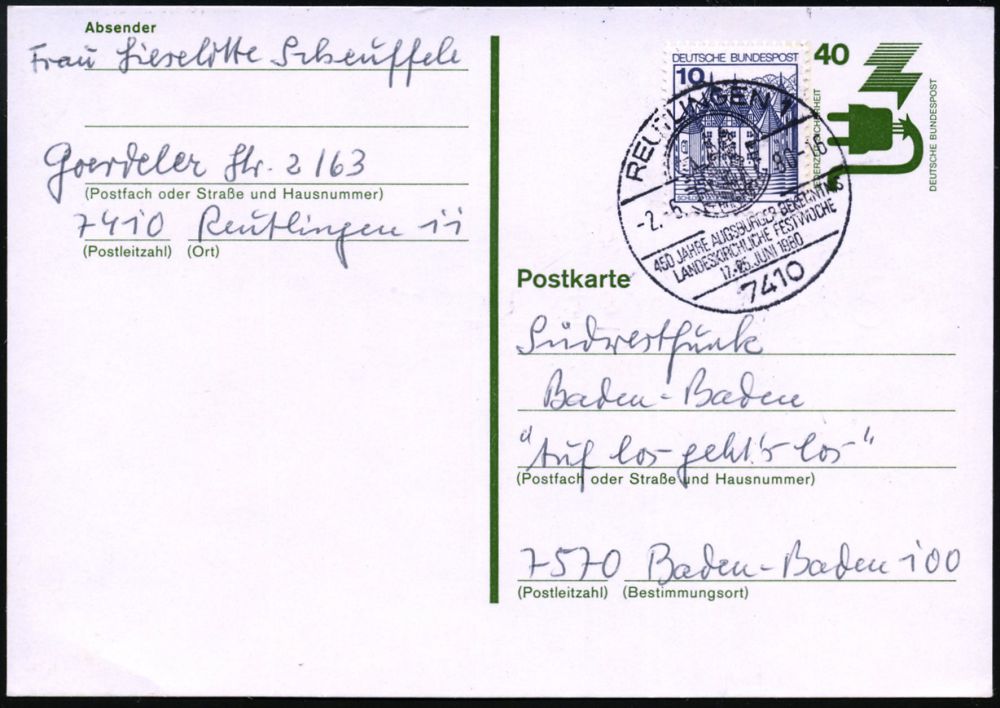 Absender
Frau Lieselotte Scheuffele
Goerdeler Str. 2/63
(Postfach oder Straße und Hausnummer)
7410 Reutlingen 11
(Postleitzahl) (Ort)
DEUTSCHE BUNDESPOST
10
40
DEUTSCHE BUNDESPOST
REUTLINGEN 1
-2.-6. 80-16
450 JAHRE AUGSBURGER BEKENNTNIS
LANDESKIRCHLICHE FESTWOCHE
JUNI 1980
7410
Postkarte
Südwestfunk
Baden-Baden
"Auf los geht's los"
(Postfach oder Straße und Hausnummer)
7570 Baden-Baden 100
(Postleitzahl) (Bestimmungsort)